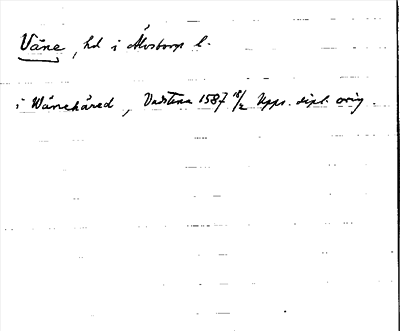 Väne, hd i Älvsborgs l.
i Wänehäred, Vadstena 1587 18/2 Upps. dipl. orig.